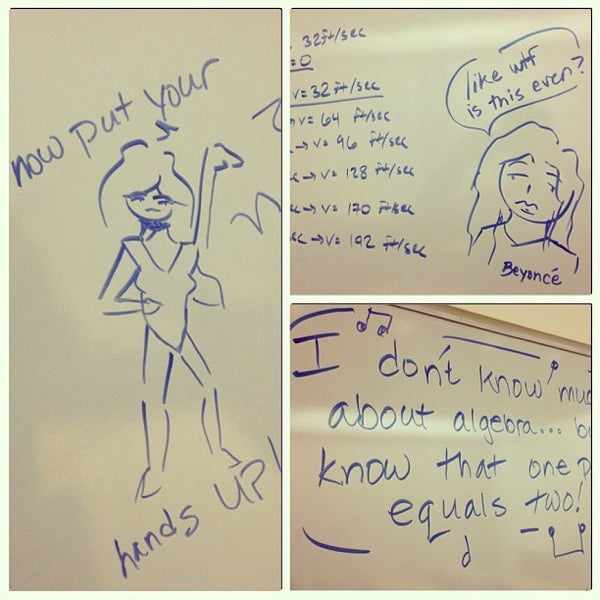 now put your
hands UP!
32ft/sec
=0
v=32 ft/sec
→v= 64 ft/sec
→v= 96 ft/sec
→v= 128 ft/sec
→v= 170 ft/sec
sec →v= 192 ft/sec
like wtf
is this even?
Beyoncé
I don't know muc
about algebra... b
know that one p
equals two!